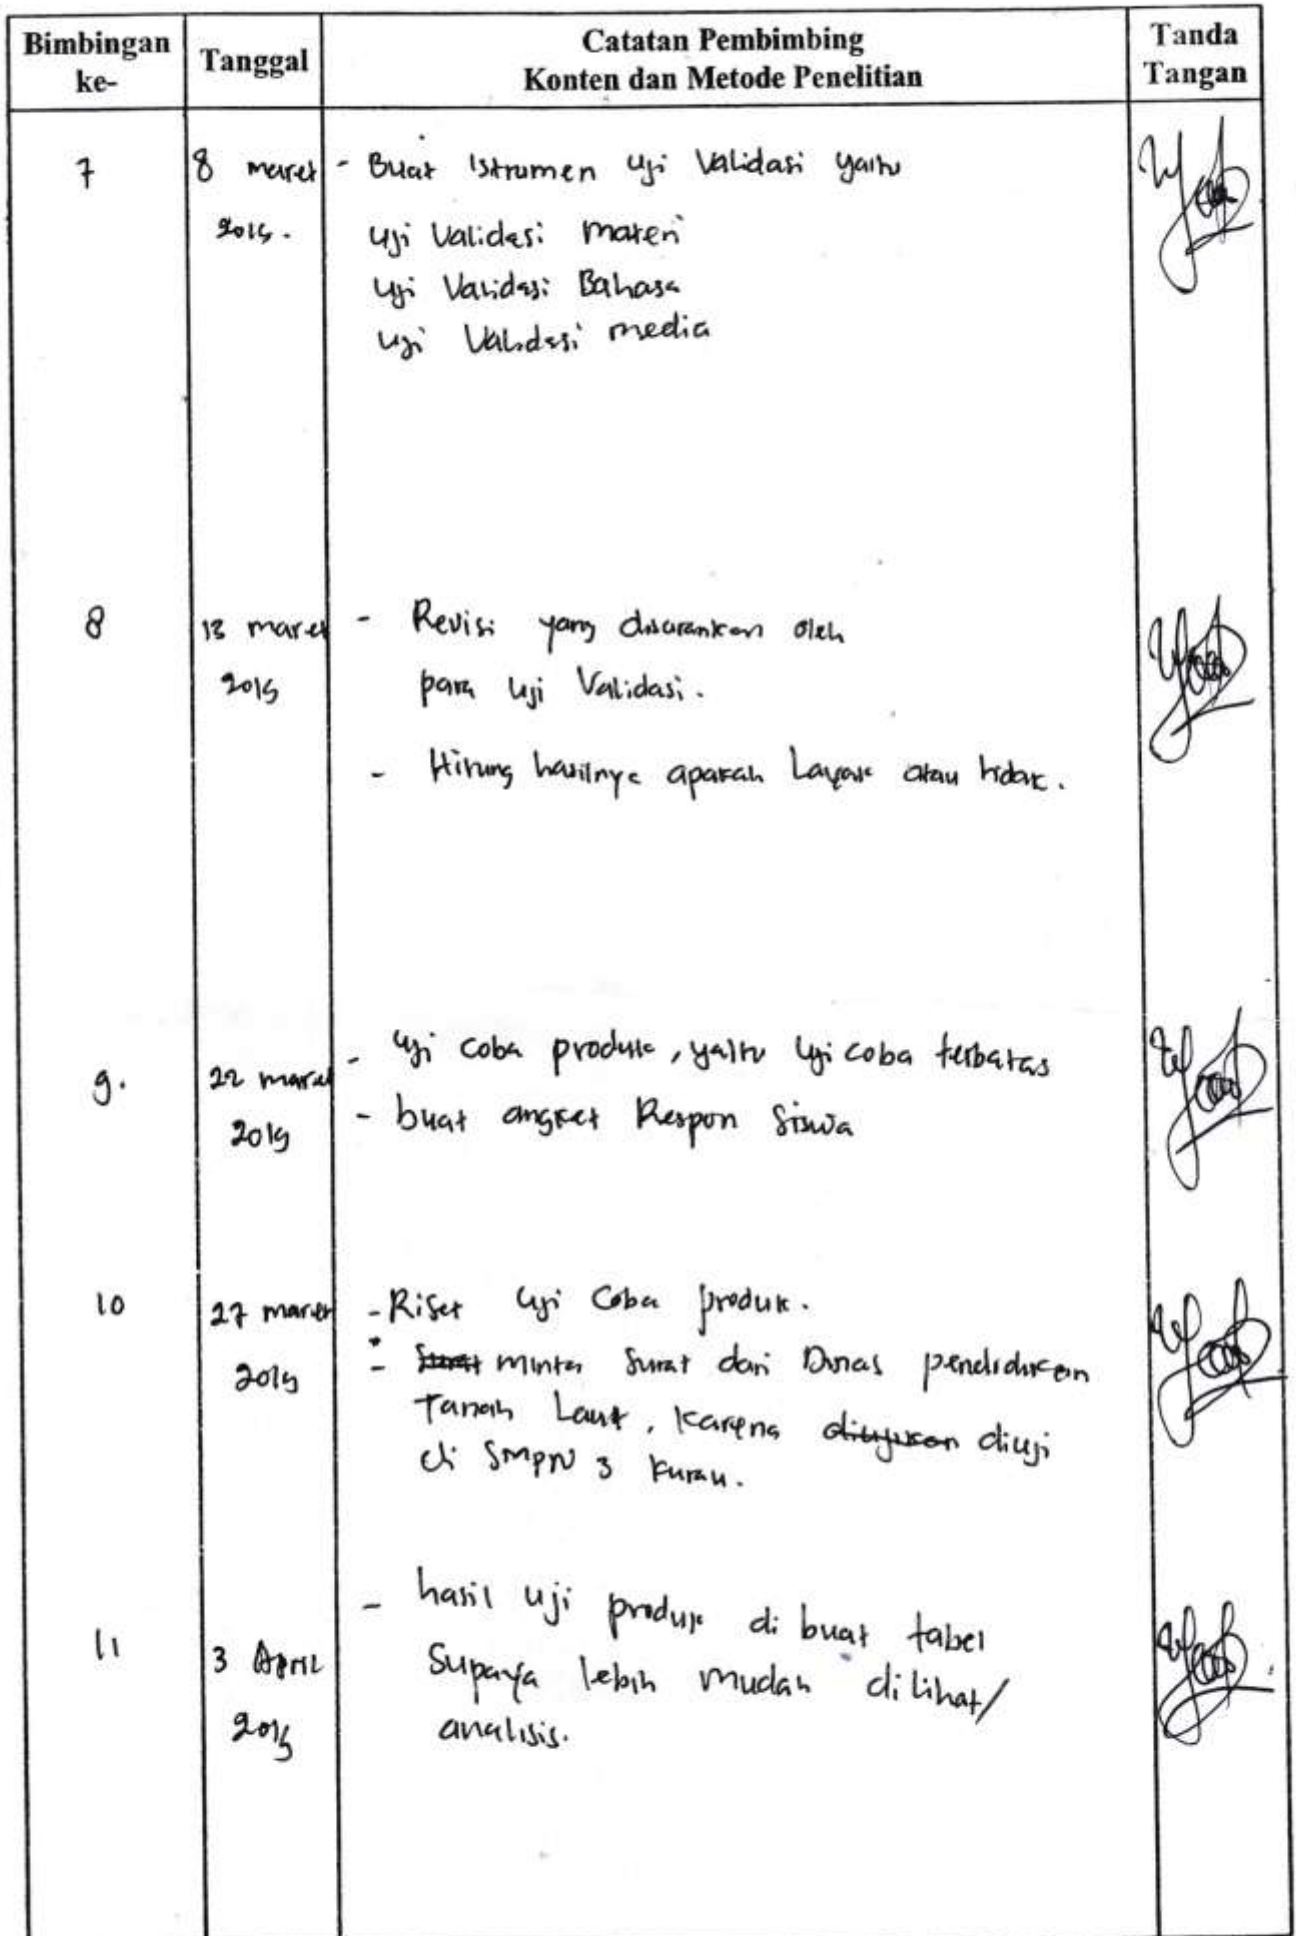 Bimbingan ke-
Tanggal
Catatan Pembimbing
Konten dan Metode Penelitian
Tanda Tangan
7
8 maret
2019.
- Buat Istrumen uji Validasi yaitu
uji Validasi materi
uji Validasi Bahasa
uji Validasi media
8
13 maret
2019
- Revisi yang disarankan oleh
para uji Validasi.
- Hitung hasilnya apakah Layak atau tidak.
9.
22 maret
2019
- uji coba produk, yaitu uji coba terbatas
- buat angket Respon Siswa
10
27 maret
2019
- Riset uji Coba produk.
- Surat minta Surat dari Dinas pendidikan
Tanah Laut, Karena diujukan diuji
di SMPN 3 Kurau.
11
3 April
2019
- hasil uji produk di buat tabel
Supaya lebih mudah di lihat/
analisis.